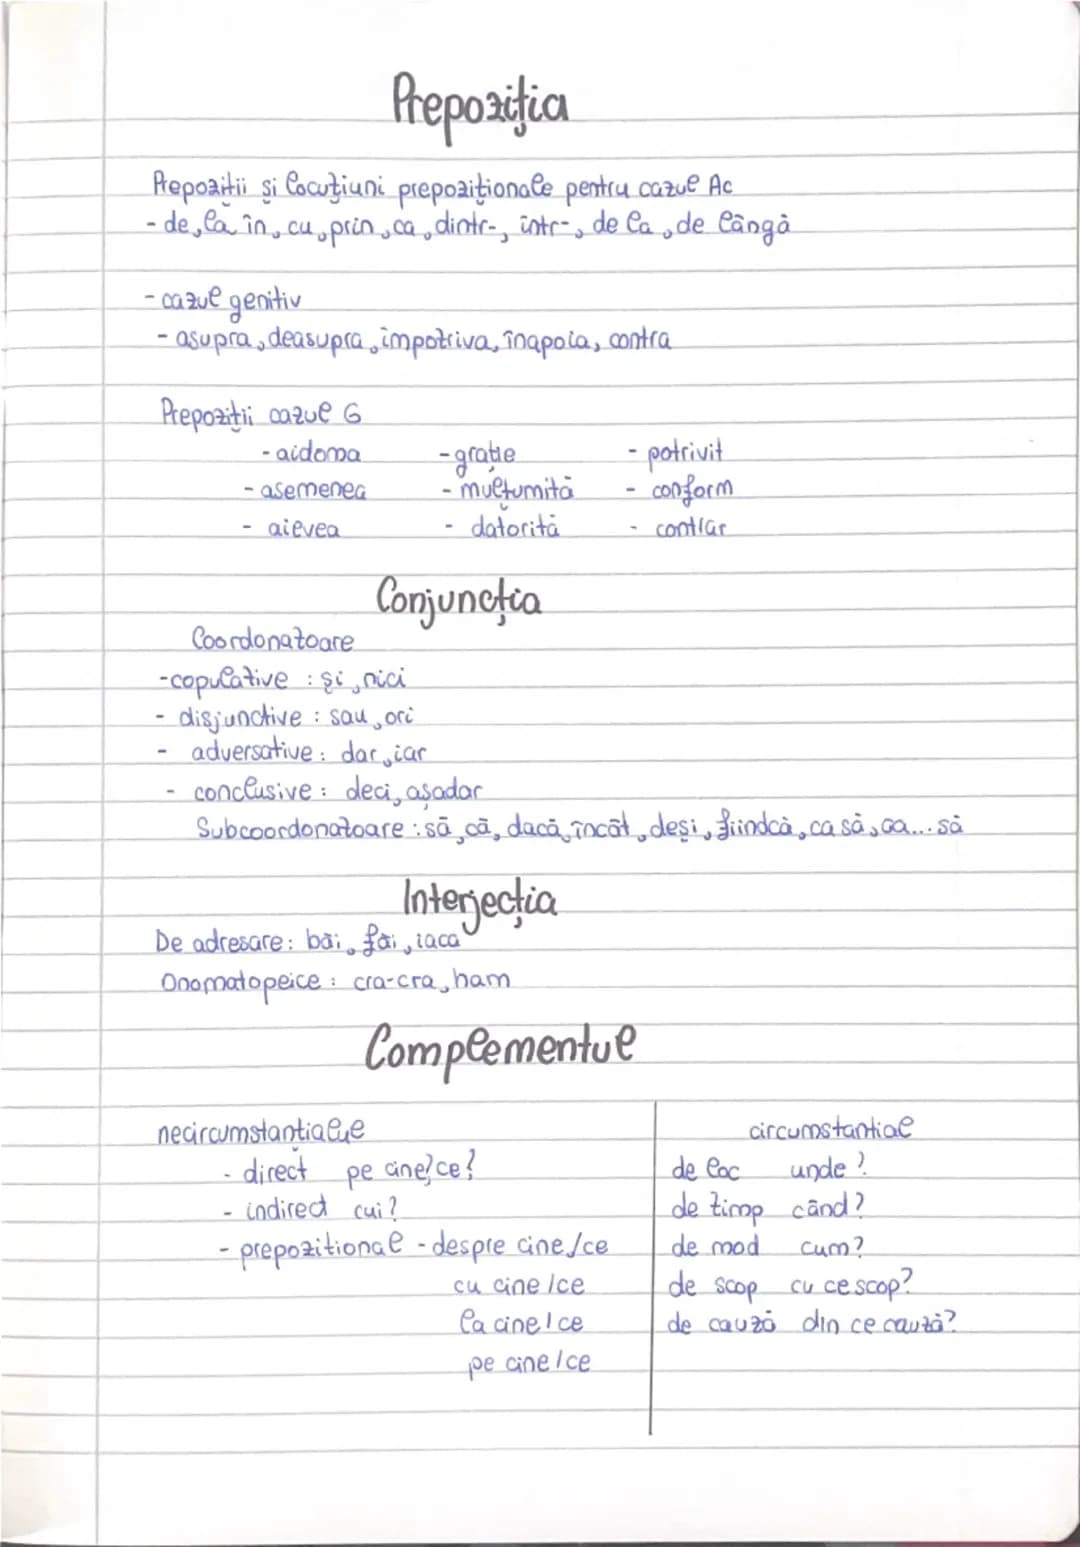 Prepoziția
Prepoziții și locuțiuni prepoziționale pentru cazul Ac
- de, la, în, cu, prin, ca, dintr-, într-, de la, de lângă
- cazul genitiv
- asupra, deasupra, împotriva, înapoia, contra
Prepoziții cazul G
- aidoma - grație - potrivit
- asemenea - mulțumită - conform
- aievea - datorită - contrar
Conjuncția
Coordonatoare
- copulative : și, nici
- disjunctive : sau, ori
- adversative : dar, iar
- conclusive : deci, așadar
Subcoordonatoare : să, că, dacă, încât, deși, fiindcă, ca să, ca... să
Interjecția
De adresare: băi, făi, iaca
Onomatopeice : cra-cra, ham
Complementul
necircumstanțialul circumstanțial
- direct pe cine/ce? de loc unde?
- indirect cui? de timp când?
- prepozițional - despre cine/ce de mod cum?
cu cine/ce de scop cu ce scop?
la cine/ce de cauză din ce cauză?
pe cine/ce